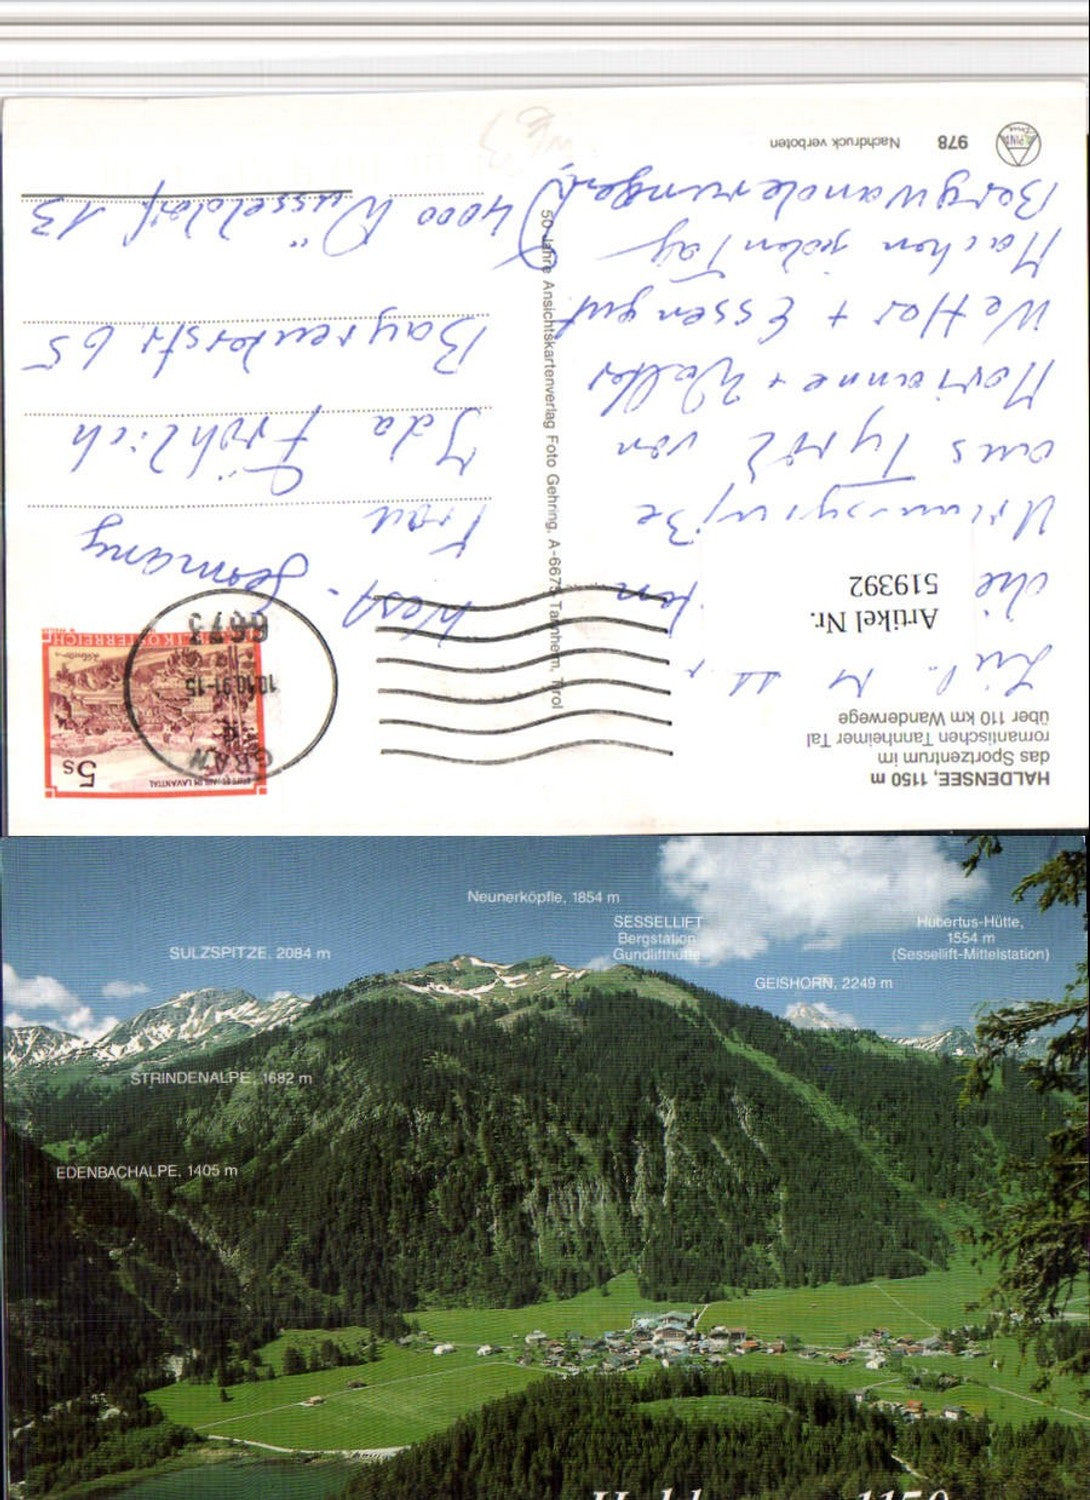 HALDENSEE, 1150 m
das Sportzentrum im
romantischen Tannheimer Tal
über 110 km Wanderwege
Artikel Nr.
519392
die
Urlaubsgrüße
aus Tyrol von
Marianne + Walter
Wetter + Essen gut.
Machen jeden Tag
Bergwanderungen
978 Nachdruck verboten
50 Jahre Ansichtskartenverlag Foto Gehring, A-6675 Tannheim, Tirol
5s
STIFT ST. PAUL IM LAVANTTAL
REPUBLIK ÖSTERREICH
GRÄN
10.10.91-15
6673
West-Germany
Frau
Ida Fröhlich
Bayreuterstr. 65
4000 Düsseldorf 13
Neunerköpfle, 1854 m
SESSELLIFT
Bergstation
Gundlifthütte
Hubertus-Hütte,
1554 m
(Sessellift-Mittelstation)
SULZSPITZE, 2084 m
GEISHORN, 2249 m
STRINDENALPE, 1682 m
EDENBACHALPE, 1405 m